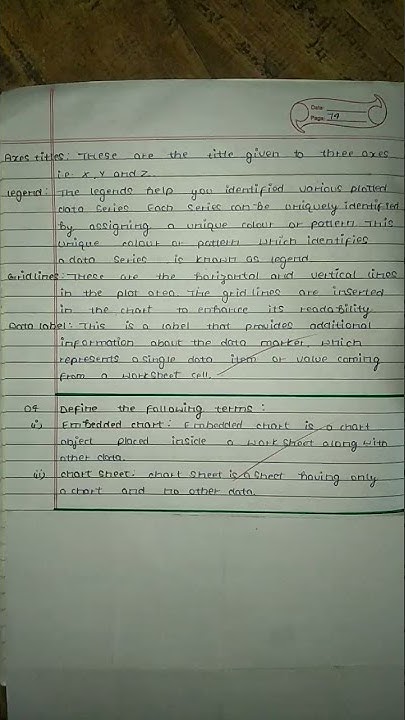 Date:
Page: 79
Axes titles: These are the title given to three axes
i.e. X, Y and Z.
Legend: The legends help you identified various plotted
data series Each series can be uniquely identified
by assigning a unique colour or pattern. This
unique colour or pattern which identifies
a data series is known as legend.
Gridlines: These are the horizontal and vertical lines
in the plot area. The grid lines are inserted
in the chart to enhance its readability.
Data label: This is a label that provides additional
information about the data marker, which
represents a single data item or value coming
from a worksheet cell.
Q4 Define the following terms:
i) Embedded chart: Embedded chart is a chart
object placed inside a work sheet along with
other data.
ii) chart sheet: chart sheet is a sheet having only
a chart and no other data.